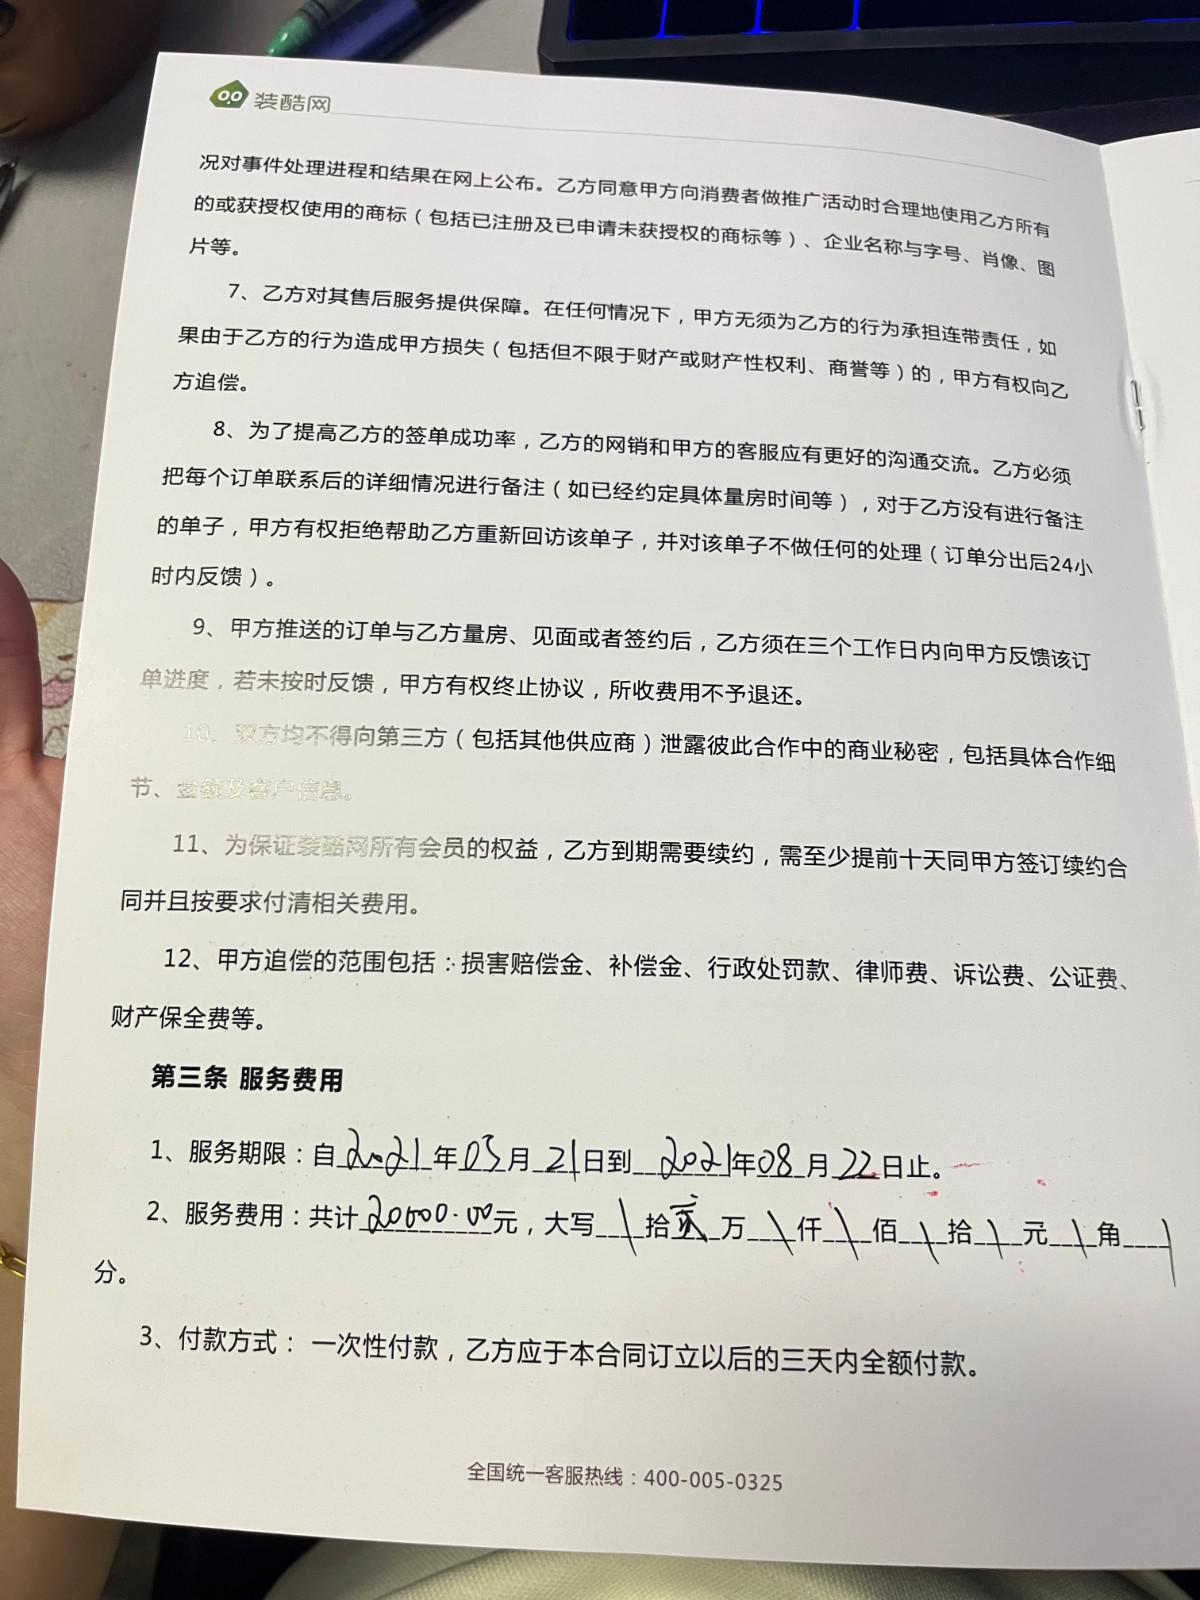 装酷网
况对事件处理进程和结果在网上公布。乙方同意甲方向消费者做推广活动时合理地使用乙方所有
的或获授权使用的商标（包括已注册及已申请未获授权的商标等）、企业名称与字号、肖像、图
片等。
7、乙方对其售后服务提供保障。在任何情况下，甲方无须为乙方的行为承担连带责任，如
果由于乙方的行为造成甲方损失（包括但不限于财产或财产性权利、商誉等）的，甲方有权向乙
方追偿。
8、为了提高乙方的签单成功率，乙方的网销和甲方的客服应有更好的沟通交流。乙方必须
把每个订单联系后的详细情况进行备注（如已经约定具体量房时间等），对于乙方没有进行备注
的单子，甲方有权拒绝帮助乙方重新回访该单子，并对该单子不做任何的处理（订单分出后24小
时内反馈）。
9、甲方推送的订单与乙方量房、见面或者签约后，乙方须在三个工作日内向甲方反馈该订
单进度，若未按时反馈，甲方有权终止协议，所收费用不予退还。
10、双方均不得向第三方（包括其他供应商）泄露彼此合作中的商业秘密，包括具体合作细
节、金额及客户信息。
11、为保证装酷网所有会员的权益，乙方到期需要续约，需至少提前十天同甲方签订续约合
同并且按要求付清相关费用。
12、甲方追偿的范围包括：损害赔偿金、补偿金、行政处罚款、律师费、诉讼费、公证费、
财产保全费等。
第三条 服务费用
1、服务期限：自2021年03月21日到2021年08月22日止。
2、服务费用：共计20000.00元，大写\拾贰万\仟\佰\拾\元\角\
分。
3、付款方式： 一次性付款，乙方应于本合同订立以后的三天内全额付款。
全国统一客服热线：400-005-0325